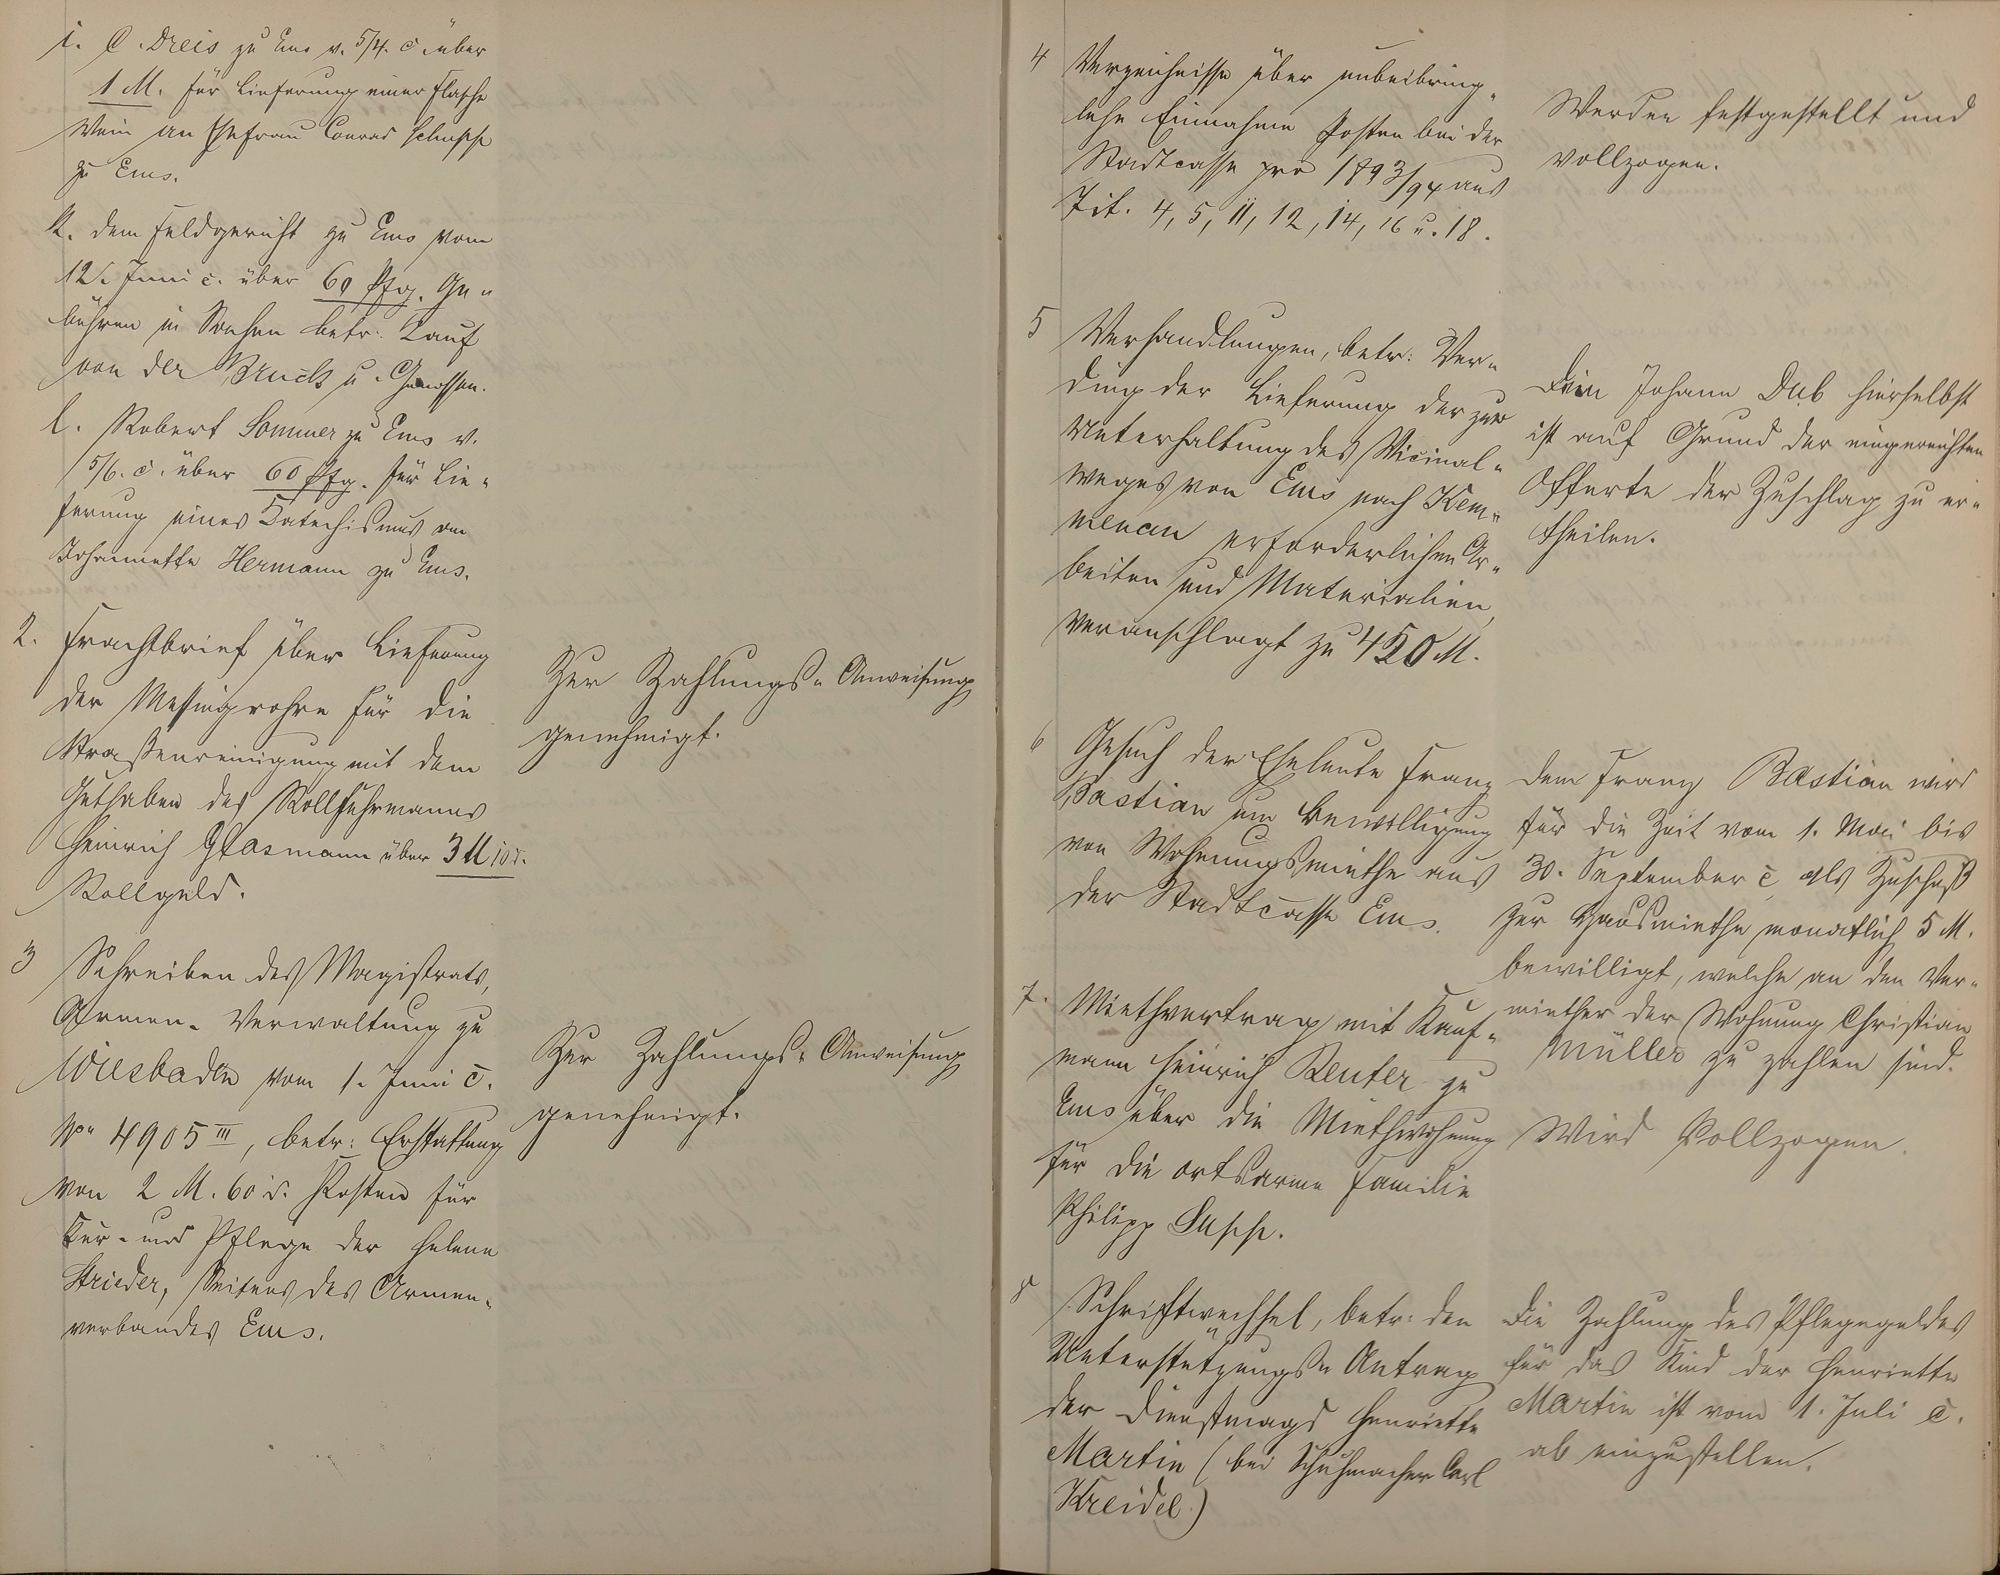 i. C. Dreis zu Ems v. 5/4. c. über
1 M. für Lieferung einer Flasche
Wein an Ehefrau Conrad
zu Ems.
k. dem Feldgericht zu Ems vom
12. Juni c. über 60 Pfg. Ge-
bühren in Sachen betr. Kauf
von der Bruck u. Genossen.
l. Robert Sommer zu Ems v.
5/6. c. über 60 Pfg. für Lie-
ferung eines Katechismus an
Johannette Hermann zu Ems.
2. Frachtbrief über Lieferung
der Messingrohre für die
Straßenreinigung mit dem
Guthaben des Rollfuhrmanns
Heinrich Glasmann über 3 M 10 d.
Rollgeld.
Zur Zahlungs-Anweisung
genehmigt.
3 Schreiben des Magistrats,
Armen-Verwaltung zu
Wiesbaden vom 1. Juni c.
No 4905 III, betr: Erstattung
von 2 M. 60 d. Kosten für
Kur- und Pflege der Helene
Strieder, Seitens des Armen-
verbandes Ems.
Zur Zahlungs-Anweisung
genehmigt.
4 Verzeichnisse über unbeibring-
lche Einnahme Posten bei der
Stadtcasse pro 1893/94 aus
Tit. 4, 5, 11, 12, 14, 16 u. 18.
Werden festgestellt und
vollzogen.
5 Verhandlungen, betr: Ver-
ding der Lieferung der zur
Unterhaltung des Vicinal-
weges von Ems nach Kem-
menau erforderlichen Ar-
beiten und Materialien,
veranschlagt zu 450 M.
Dem Johann Dub hierselbst
ist auf Grund der eingereichten
Offerte der Zuschlag zu er-
theilen.
6 Gesuch der Eheleute Franz
Bastian um Bewilligung
von Wohnungsmiethe aus
der Stadtcasse Ems.
Dem Franz Bastian wird
für die Zeit vom 1. Mai bis
30. September c als Zuschuß
zur Hausmiethe monatlich 5 M.
bewilligt, welche an den Ver-
miether der Wohnung Christian
Müller zu zahlen sind.
7. Miethvertrag mit Kauf-
mann Heinrich Reuter zu
Ems über die Miethwohnung
für die ortsarme Familie
Philipp
Wird Vollzogen.
8 Schriftwechsel, betr: den
Unterstützungs-Antrag
der Dienstmagd Henriette
Martin (bei Schuhmacher Carl
Kreidel)
Die Zahlung des Pflegegeldes
für das Kind der Henriette
Martin ist vom 1. Juli c.
ab einzustellen.